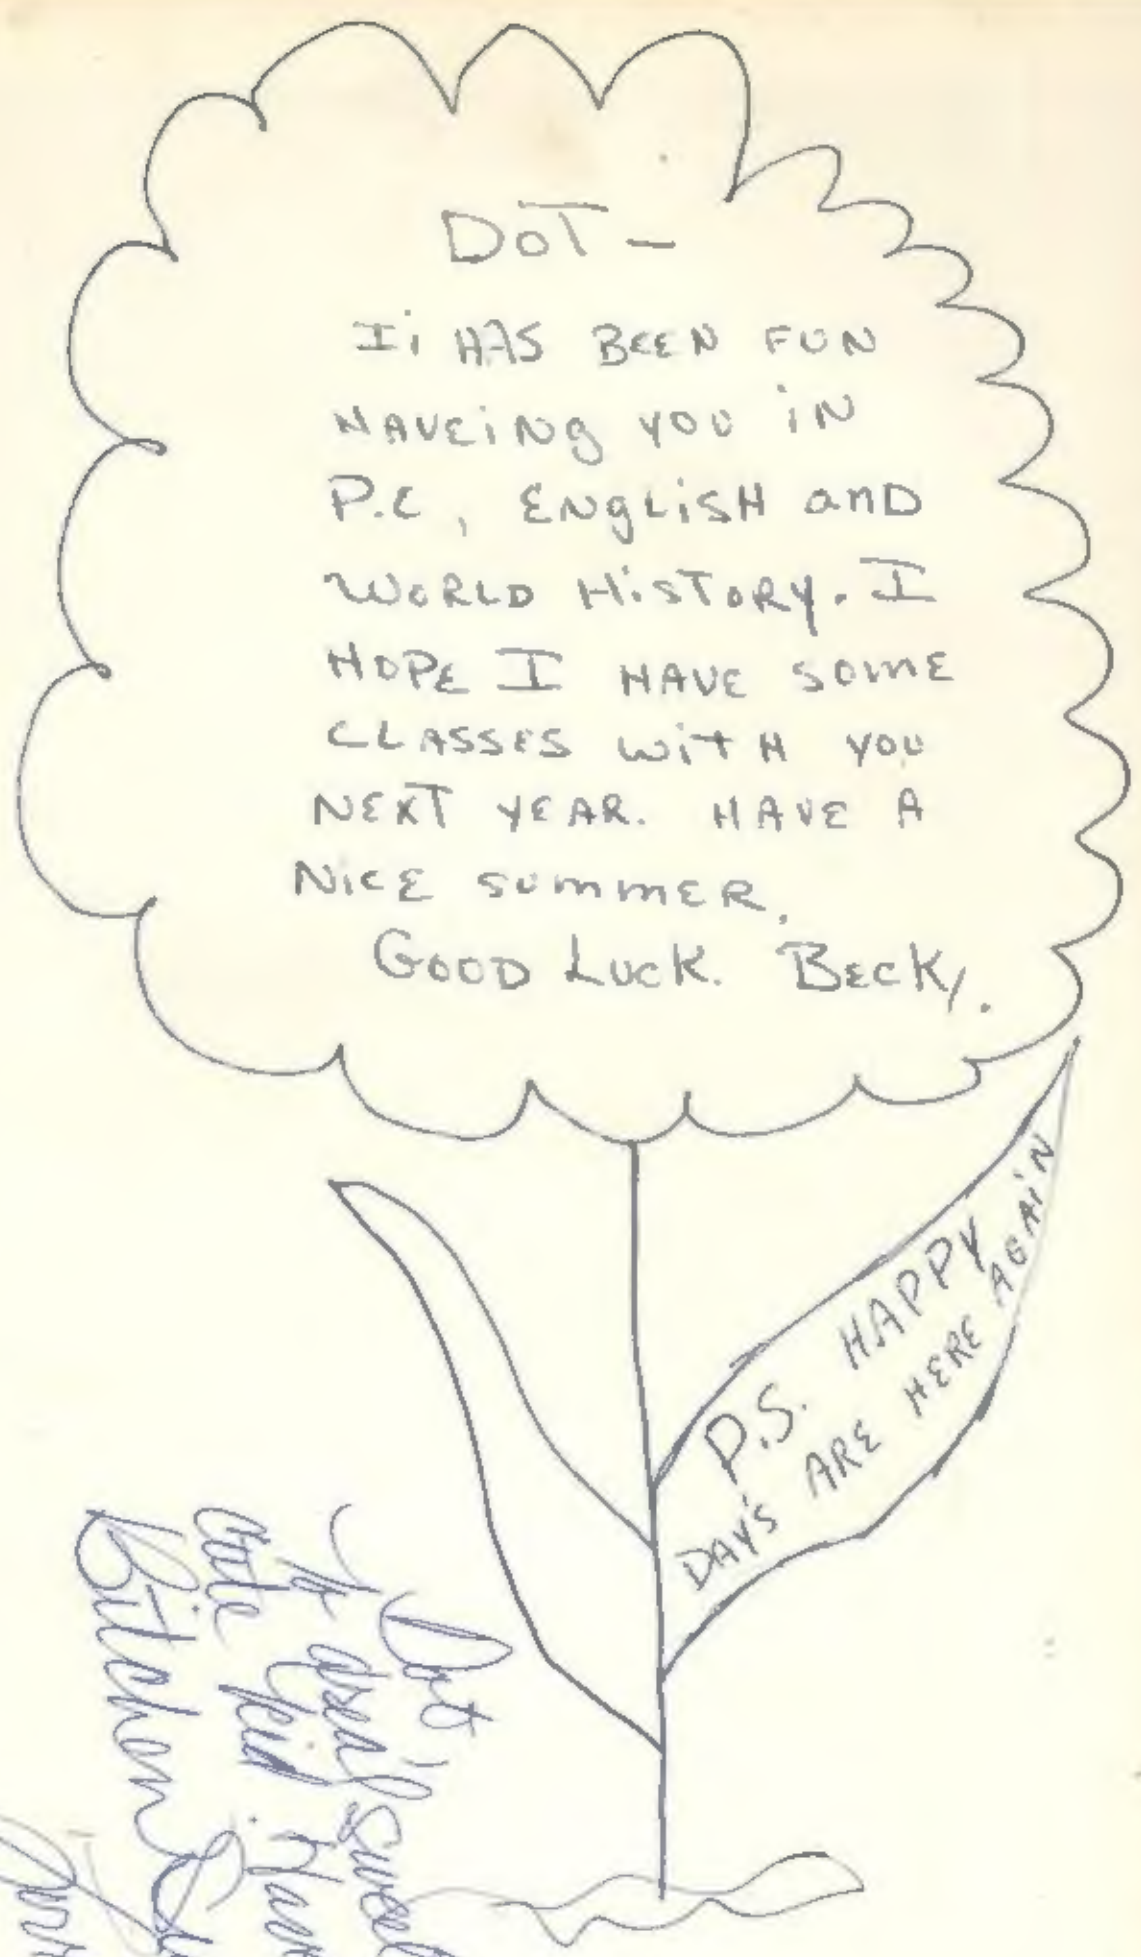 DOT —
IT HAS BEEN FUN
HAVEING YOU IN
P.E, ENGLISH and
WORLD HISTORY. I
HOPE I HAVE SOME
CLASSES WITH YOU
NEXT YEAR. HAVE A
NICE SUMMER.
GOOD LUCK. BECKY.
P.S. HAPPY
DAY'S ARE HERE AGAIN
Dot
To a real sweet
cute kid. Have
Bitchen